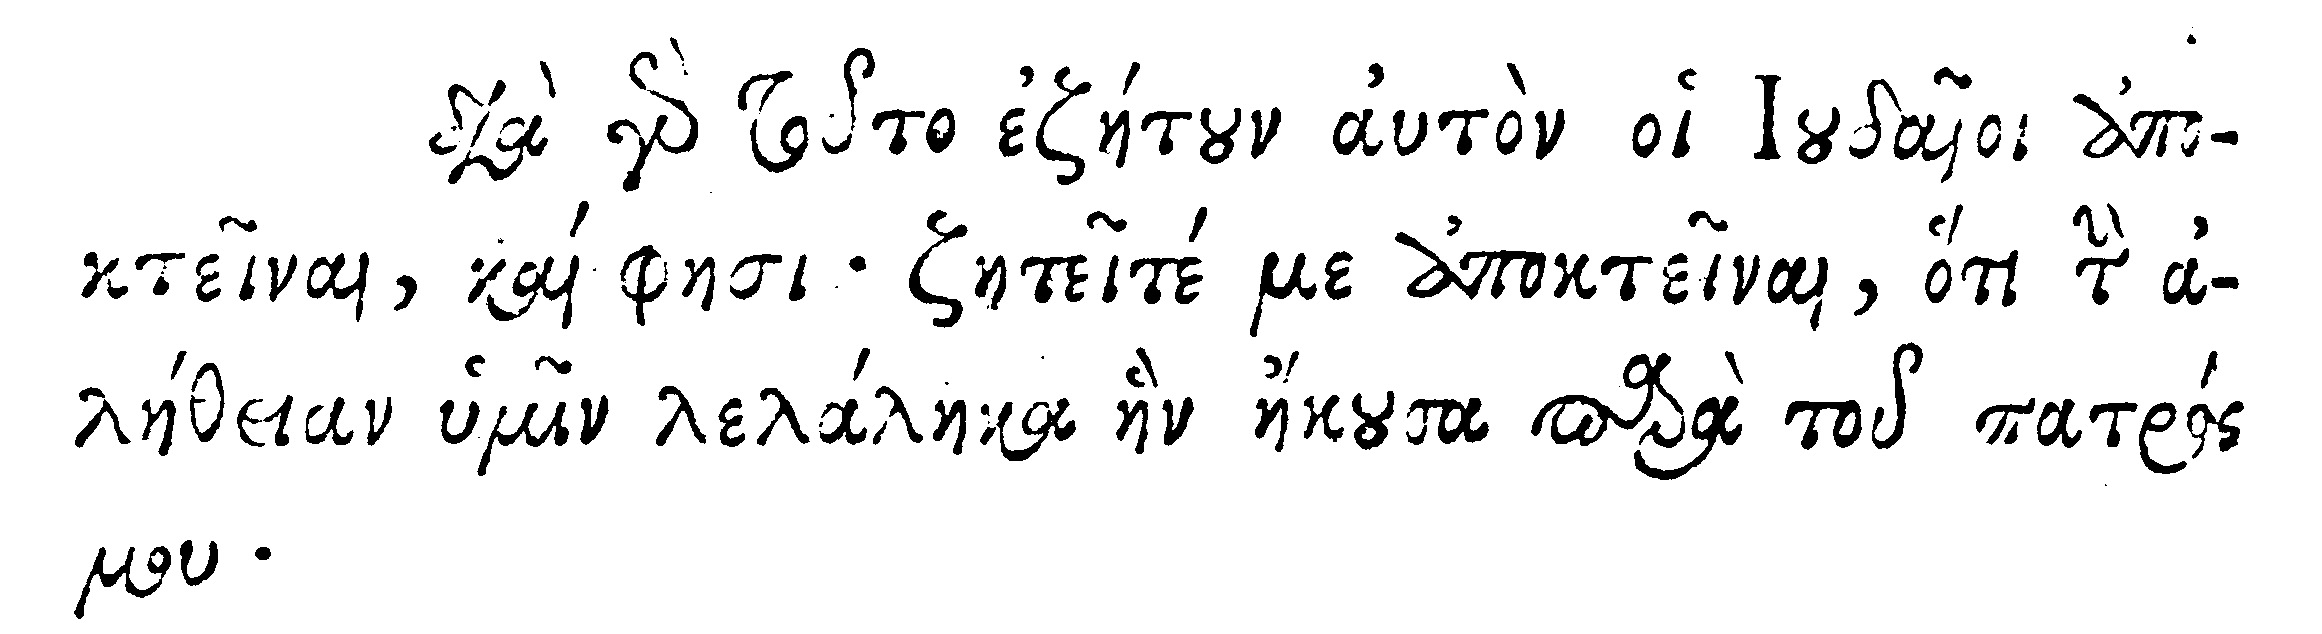 διὰ γὰρ τοῦτο ἐζήτουν ἀυτὸν οἱ Ιουδαῖοι ἀπο-
κτεῖναι, καί φησι· ζητεῖτέ με ἀποκτεῖναι, ὅτι τὴν ἀ-
λήθειαν ὑμῖν λελάληκα ἣν ἤκουσα παρὰ τοῦ πατρός
μου.